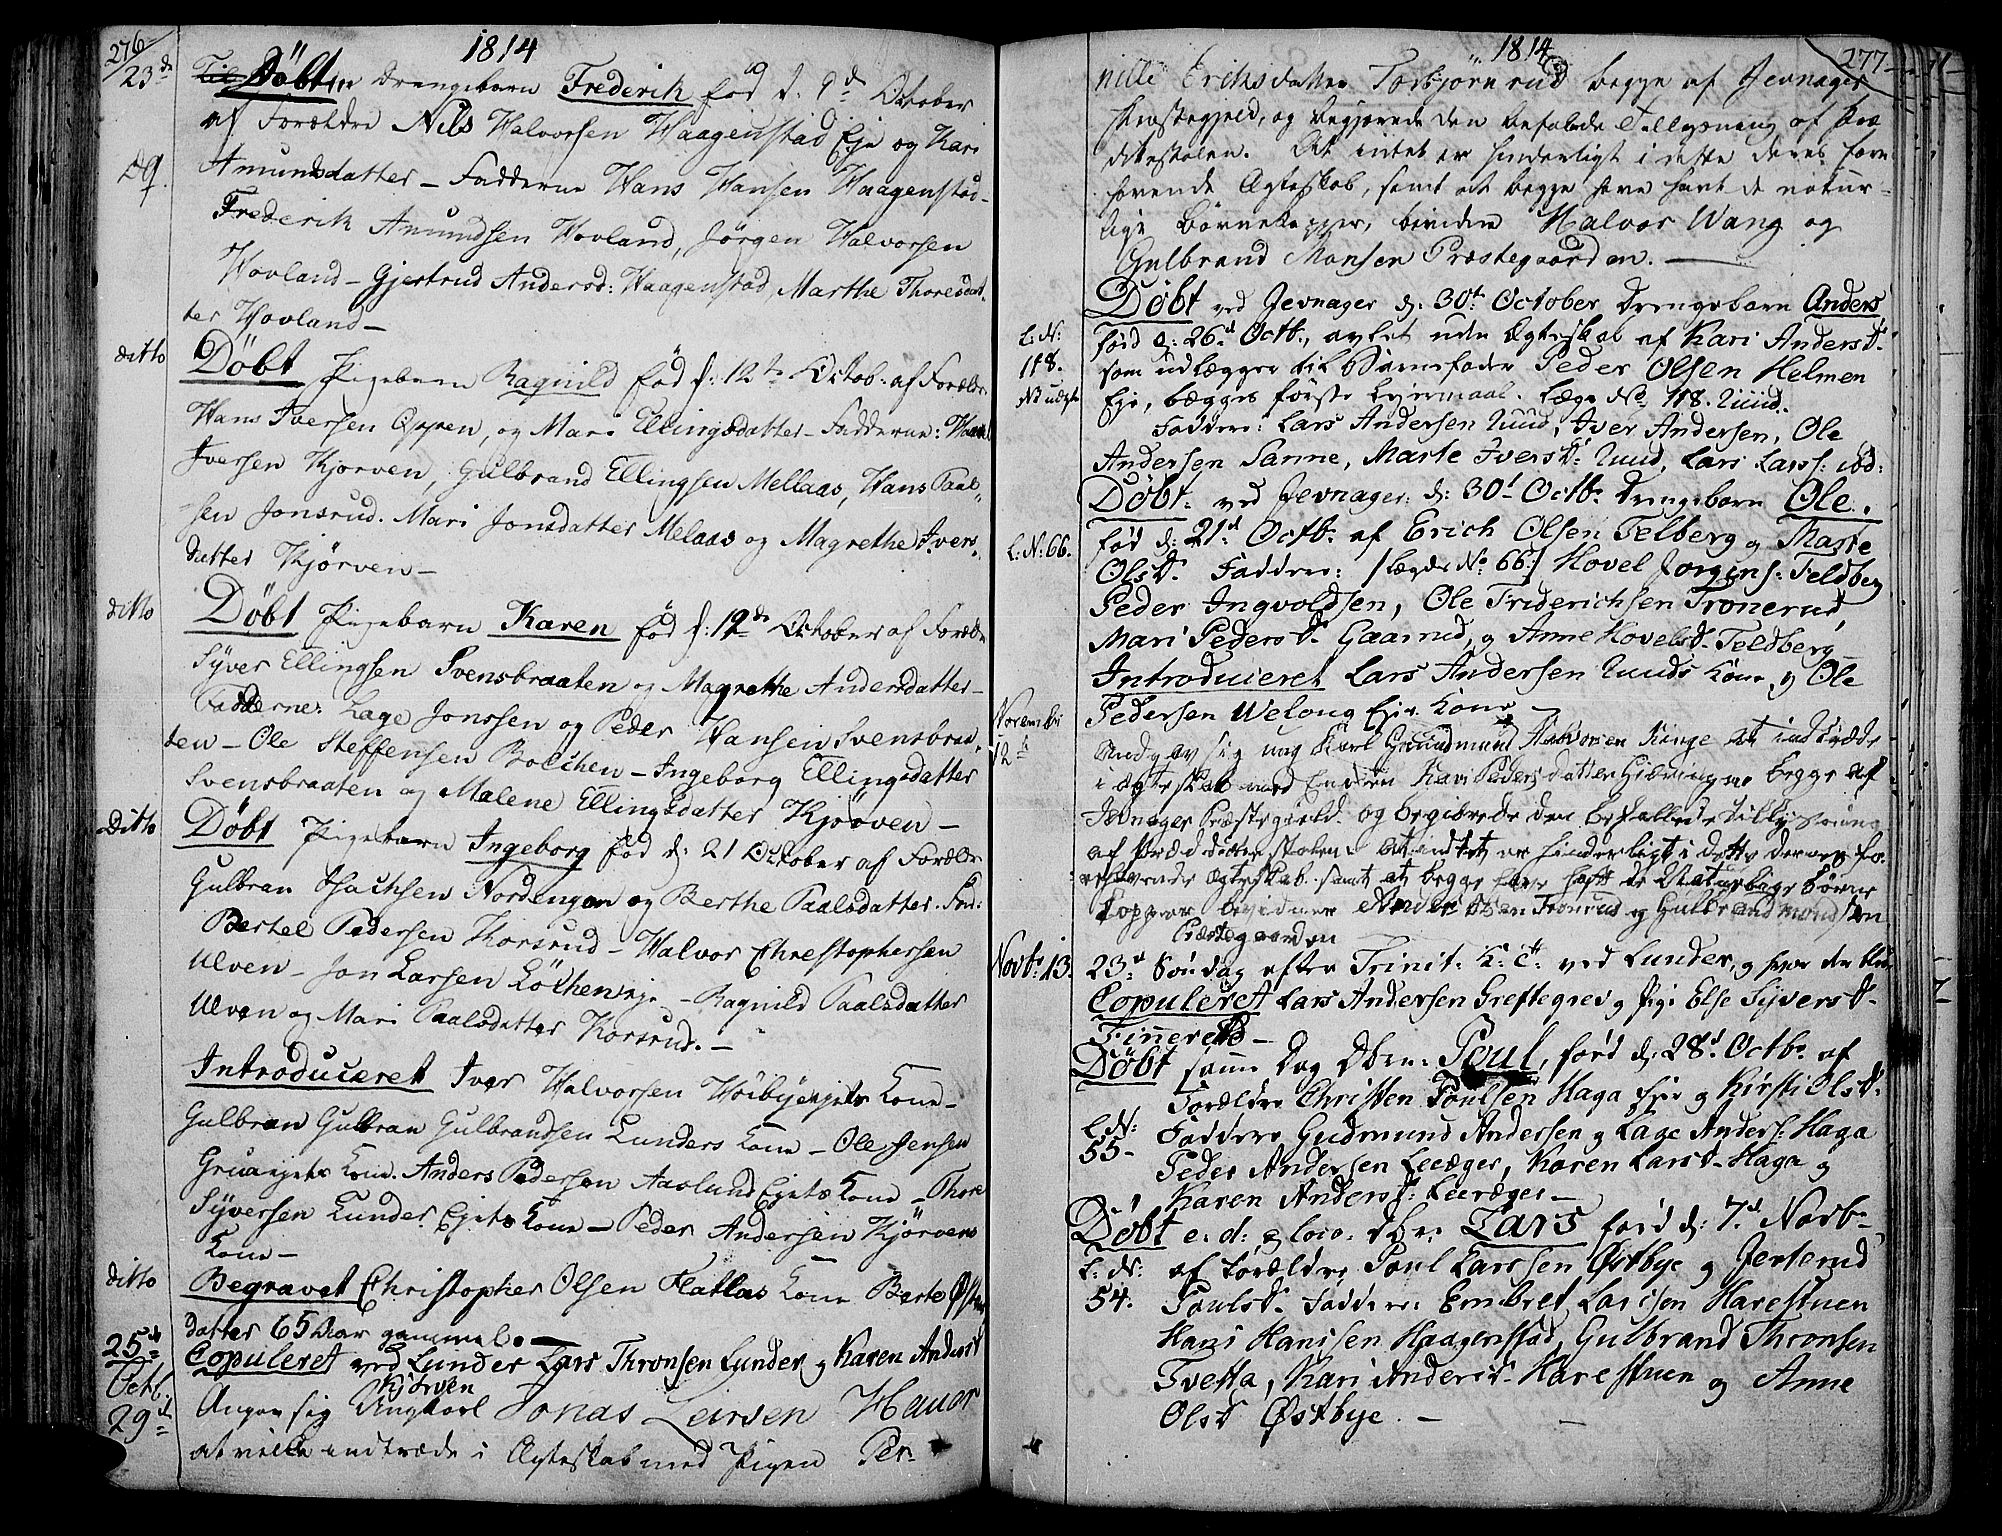 276
1814
23de
Døbt Drengebarn Frederik fød d: 9de October
af Forældre Nils Halvorsen Haagenstad Eje og Kari
Amunsdatter - Fadderne Hans Hansen Haagenstad-
Frederik Amundsen Hovland, Jørgen Halvorsen
Hovland - Gjertrud Andersd: Haagenstad Marthe Thoresdat-
ter Hovland -
ditto
Døbt Pigebarn Ragnild fød d: 12te Octob: af Forældr
Hans Iversen Oppen, og Mari Ellingsdatter - Fadderne:
Iversen Kjørven, Gulbrand Ellingsen Mellaas, Hans Paal-
sen Jonsrud. Mari Jonsdatter Melaas og Magrethe Ivers-
datter Kjørven -
ditto
Døbt Pigebarn Karen fød d: 19de October af Forældr
Syver Ellingsen Svensbraaten og Magrethe Andersdatter -
Fadderne: Lage Jonssen og Peder Hansen Svensbraa-
ten - Ole Steffensen Bolchen - Ingeborg Ellingsdatter
Svensbraaten og Malene Ellingsdatter Kjørven -
Ditto
Døbt Pigebarn Ingeborg fød d: 21 October af Forældr
Gulbran Isachsen Nordengen og Berthe Paalsdatter. Fad:
Bertel Pedersen Korsrud - Halvor Christophersen
Ulven - Jon Larsen Løkhen eje - Ragnild Paalsdatter
Ulven og Mari Paalsdatter Korsrud. -
Introduceret Iver Halvorsen Høibyeejets Kone -
Gulbran Gulbran Gulbrandsen Lunders Kone - Ole Jensen
Gruaejets Kone. Anders Pedersen Aaslund Ejets Kone - Thore
Syversen Lunder Ejets Kone - Peder Andersen Kjørvens
Kone -
ditto
Begravet Christopher Olsen Flattas Kone Berte
datter 65 Aar gammel. -
25de
Octb.
Copuleret ved Lunder Lars Thronsen Lunder og Karen Andersd
Kjørven
29de
Angav sig Ungkarl Jonas Larsen Hauer
at ville indtræde i Ægteskab med Pigen Per-
1814
277
nille Eriksdatter Torbjørnrud begge af Jevnager
Præstegjeld, og begjerede den befalede Tillysning af Præ
dikestolen. At intet er hinderligt i dette deres fore
havende Ægteskab, samt at begge have havt de natur-
lige Børnekopper, bevidne Halvor Wang og
Gulbrand Monsen Præstegaarden. -
L: N:
118.
Døbt ved Jevnager d: 30te October Drengebarn Anders
fød d: 26d Octb., avlet uden Ægteskab af Kari Andersd.
som udlægger til Barnefader Peder Olsen Helmen
Eje, begges første Lejermaal. Læge No 118. Ruud.
Faddere: Lars Andersen Ruud, Iver Andersen, Ole
Andersen Sanne, Marte Iversd: Ruud, Lars Larss: ibd:
L: N: 66.
Døbt: ved Jevnager: d: 30d Octb. Drengebarn Ole.
fød d: 21d Octb. af Erich Olsen Felberg og Marte
Olsd. Faddere: /Lægde No 66/ Hovel Jorgens: Feldberg
Peder Ingvoldsen, Ole Friderichsen Tronerud,
Mari Pedersd. Gaarud, og Anne Hovelsd. Feldberg -
Introduceret Lars Andersen Ruuds Kone, og Ole
Pedersen Welong Eje Kone -
Novembr
12d
Andgav sig ung Karl Gudmund Kinge at indtræde
i ægteskab med Enken Kari Pedersdatter begge af
Jevnager Præstegield. og begierede den befallede Tillysning
af Prædikestolen. at intet er hinderligt i dette deres fo-
rehavende ægteskab. samt at begge have haft de Naturlige børne
kopper bevidner Olsen Tronrud og Gulbrand Monssen
Præstegaarden
Novbr 13.
23d Søndag efter Trinit: K: C: ved Lunder, og hvor der blev
Copuleret Lars Andersen Greftegrev og Pige Else Syversd.
Finnerud -
L: N:
55 -
Døbt samme Dag Dbn: Poul, fød d: 28d Octb. af
Forældre Christen Poulsen Haga Eje og Kirsti Olsd.
Faddere Gudmund Andersen og Lage Anders: Haga
Peder Andersen Leeæger, Karen Larsd. Haga og
Karen Andersd: Leeræger -
L: N:
54.
Døbt e: d: & loco: Dbn: Lars fød d: 7d Novb.
af Forældre Poul Larssen Østbye og Jertrud
Poulsd. Faddere: Embret Larssen Harestuen
Hans Hanssen Haagenstad, Gulbrand Thronsen
Tvetta, Kari Andersd. Harestuen og Anne
Olsd Østbye. -